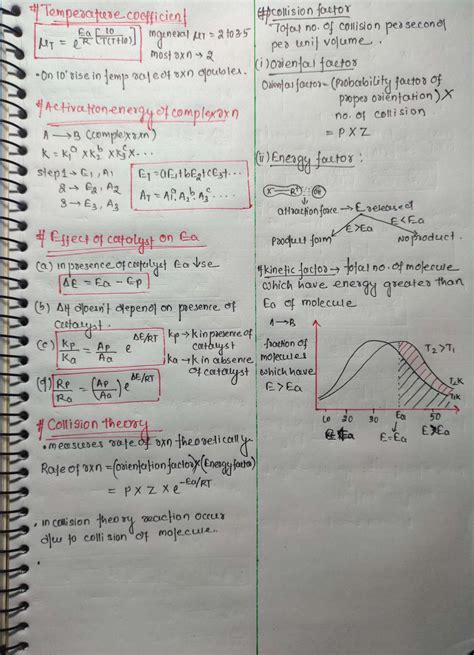 # Temperature coefficient
μT = e^(Ea/R [10/T(T+10)])
in general μT = 2 to 3.5
most rxn → 2
• On 10° rise in temp rate of rxn doubles.
# Activation energy of complex rxn
A → B (complex rxn)
K = K1^a × K2^b × K3^c × ...
step 1 → E1, A1
2 → E2, A2
3 → E3, A3
ET = aE1 + bE2 + cE3 ...
AT = A1^a . A2^b . A3^c ...
# Effect of catalyst on Ea
(a) in presence of catalyst Ea ↓se
ΔE = Ea - Ep
(b) ΔH doesn't depend on presence of
catalyst.
(c) Kp/Ka = Ap/Aa e^(ΔE/RT)
kp → k in presence of
catalyst
ka → k in absence
of catalyst
(d) Rp/Ra = (Ap/Aa) e^(ΔE/RT)
# Collision theory
• measures rate of rxn theoretically.
Rate of rxn = (orientation factor) × (Energy factor)
= P × Z × e^(-Ea/RT)
• in collision theory reaction occur
due to collision of molecule.
# collision factor
Total no. of collision per second
per unit volume.
(i) Oriental factor
Oriental factor = (Probability factor of
proper orientation) ×
no. of collision
= P × Z
(ii) Energy factor :
attraction force → E released
E > Ea
E < Ea
Product form
No product.
# kinetic factor → total no. of molecule
which have energy greater than
Ea of molecule
A → B
fraction of
molecules
which have
E > Ea
T2 > T1
T2K
T1K
10 20 30 Ea 50
E = Ea
E > Ea